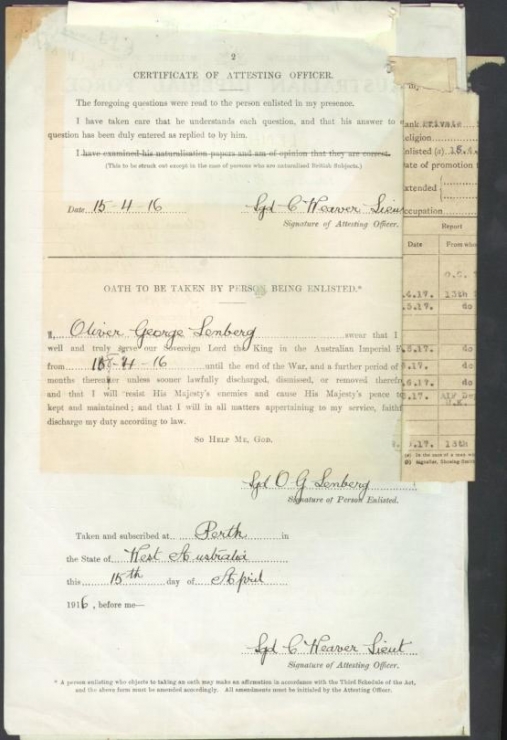 2
CERTIFICATE OF ATTESTING OFFICER.
The foregoing questions were read to the person enlisted in my presence.
I have taken care that he understands each question, and that his answer to e
question has been duly entered as replied to by him.
I have examined his naturalisation papers and am of opinion that they are correct.
(This to be struck out except in the case of persons who are naturalised British Subjects.)
Date 15-4-16
Sgd C Weaver Lieut
Signature of Attesting Officer.
OATH TO BE TAKEN BY PERSON BEING ENLISTED.*
I, Oliver George Lenberg swear that I
well and truly serve our Sovereign Lord the King in the Australian Imperial F
from 15-4-16 until the end of the War, and a further period of
months thereafter unless sooner lawfully discharged, dismissed, or removed therefro
and that I will resist His Majesty's enemies and cause His Majesty's peace to
kept and maintained; and that I will in all matters appertaining to my service, faith
discharge my duty according to law.
SO HELP ME, GOD.
Sgd O G Lenberg
Signature of Person Enlisted.
Taken and subscribed at Perth in
the State of West Australia
this 15th day of April
1916, before me—
Sgd C Weaver Lieut
Signature of Attesting Officer.
* A person enlisting who objects to taking an oath may make an affirmation in accordance with the Third Schedule of the Act,
and the above form must be amended accordingly. All amendments must be initialed by the Attesting Officer.
ank Private
eligion
nlisted (a) 15.4.
ate of promotion t
xtended
ccupation
Report
Date From who
.4.17. 13th
.5.17. do
.17. do
.17. do
.6.17. do
.17.
.17. 13th